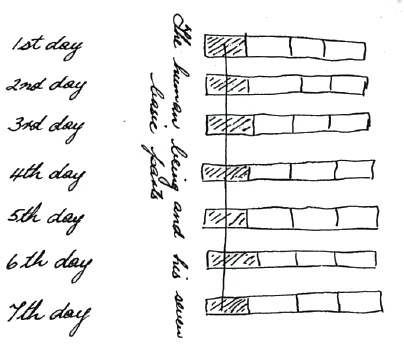 1st day
2nd day
3rd day
4th day
5th day
6th day
7th day
The human being and his seven
basic parts